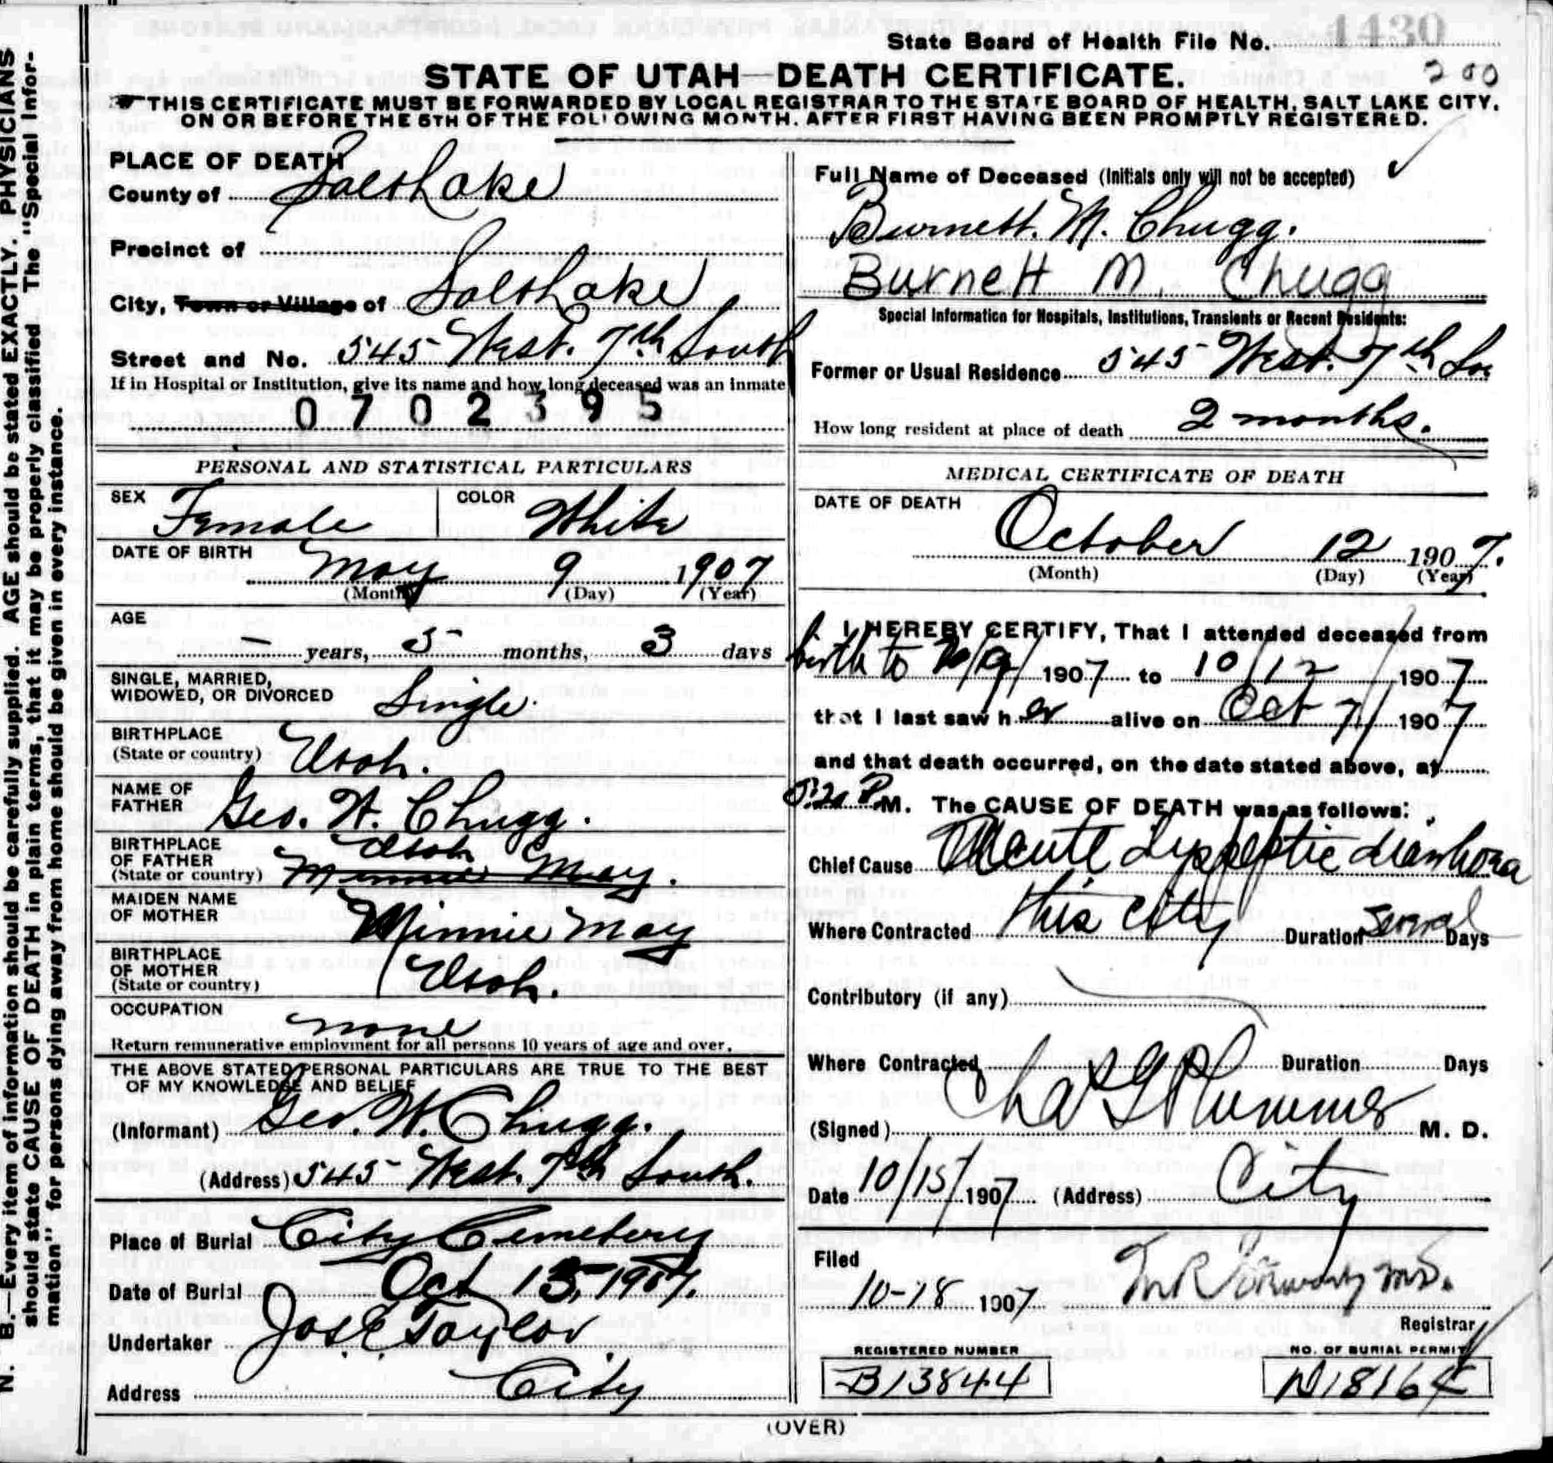 N. B.—Every item of information should be carefully supplied. AGE should be stated EXACTLY. PHYSICIANS
should state CAUSE OF DEATH in plain terms, that it may be properly classified. The "Special Infor-
mation" for persons dying away from home should be given in every instance.
State Board of Health File No. 1430
200
STATE OF UTAH—DEATH CERTIFICATE.
THIS CERTIFICATE MUST BE FORWARDED BY LOCAL REGISTRAR TO THE STATE BOARD OF HEALTH, SALT LAKE CITY,
ON OR BEFORE THE 5TH OF THE FOLLOWING MONTH, AFTER FIRST HAVING BEEN PROMPTLY REGISTERED.
PLACE OF DEATH
County of Salt Lake
Precinct of
City, Town or Village of Salt Lake
Street and No. 545 West. 7th South
If in Hospital or Institution, give its name and how long deceased was an inmate
0702395
PERSONAL AND STATISTICAL PARTICULARS
SEX Female COLOR White
DATE OF BIRTH May 9 1907
(Month) (Day) (Year)
AGE
— years, 5 months, 3 days
SINGLE, MARRIED,
WIDOWED, OR DIVORCED Single.
BIRTHPLACE
(State or country) Utah.
NAME OF
FATHER Geo. W. Chugg.
BIRTHPLACE
OF FATHER Utah
(State or country) Minnie May.
MAIDEN NAME
OF MOTHER Minnie May
BIRTHPLACE
OF MOTHER
(State or country) Utah.
OCCUPATION none
Return remunerative employment for all persons 10 years of age and over.
THE ABOVE STATED PERSONAL PARTICULARS ARE TRUE TO THE BEST
OF MY KNOWLEDGE AND BELIEF
(Informant) Geo. W. Chugg.
(Address) 545 West. 7th South.
Place of Burial City Cemetery
Date of Burial Oct 13, 1907.
Undertaker Jos. E. Taylor
Address City
Full Name of Deceased (Initials only will not be accepted)
Burnett. M. Chugg.
Burnett M. Chugg
Special Information for Hospitals, Institutions, Transients or Recent Residents:
Former or Usual Residence 545 West. 7th So
How long resident at place of death 2 months.
MEDICAL CERTIFICATE OF DEATH
DATE OF DEATH
October 12 1907.
(Month) (Day) (Year)
I HEREBY CERTIFY, That I attended deceased from
birth to 10/9/ 1907 to 10/12/1907
that I last saw her alive on Oct 7/ 1907
and that death occurred, on the date stated above, at
P.M. The CAUSE OF DEATH was as follows:
Chief Cause Acute dyspeptic diarrhoea
Where Contracted this city Duration several Days
Contributory (if any)
Where Contracted Duration Days
(Signed) Chas G Plummer M. D.
Date 10/15/1907 (Address) City
Filed
10-18 1907 M.D.
Registrar
REGISTERED NUMBER
B13844
NO. OF BURIAL PERMIT
(OVER)